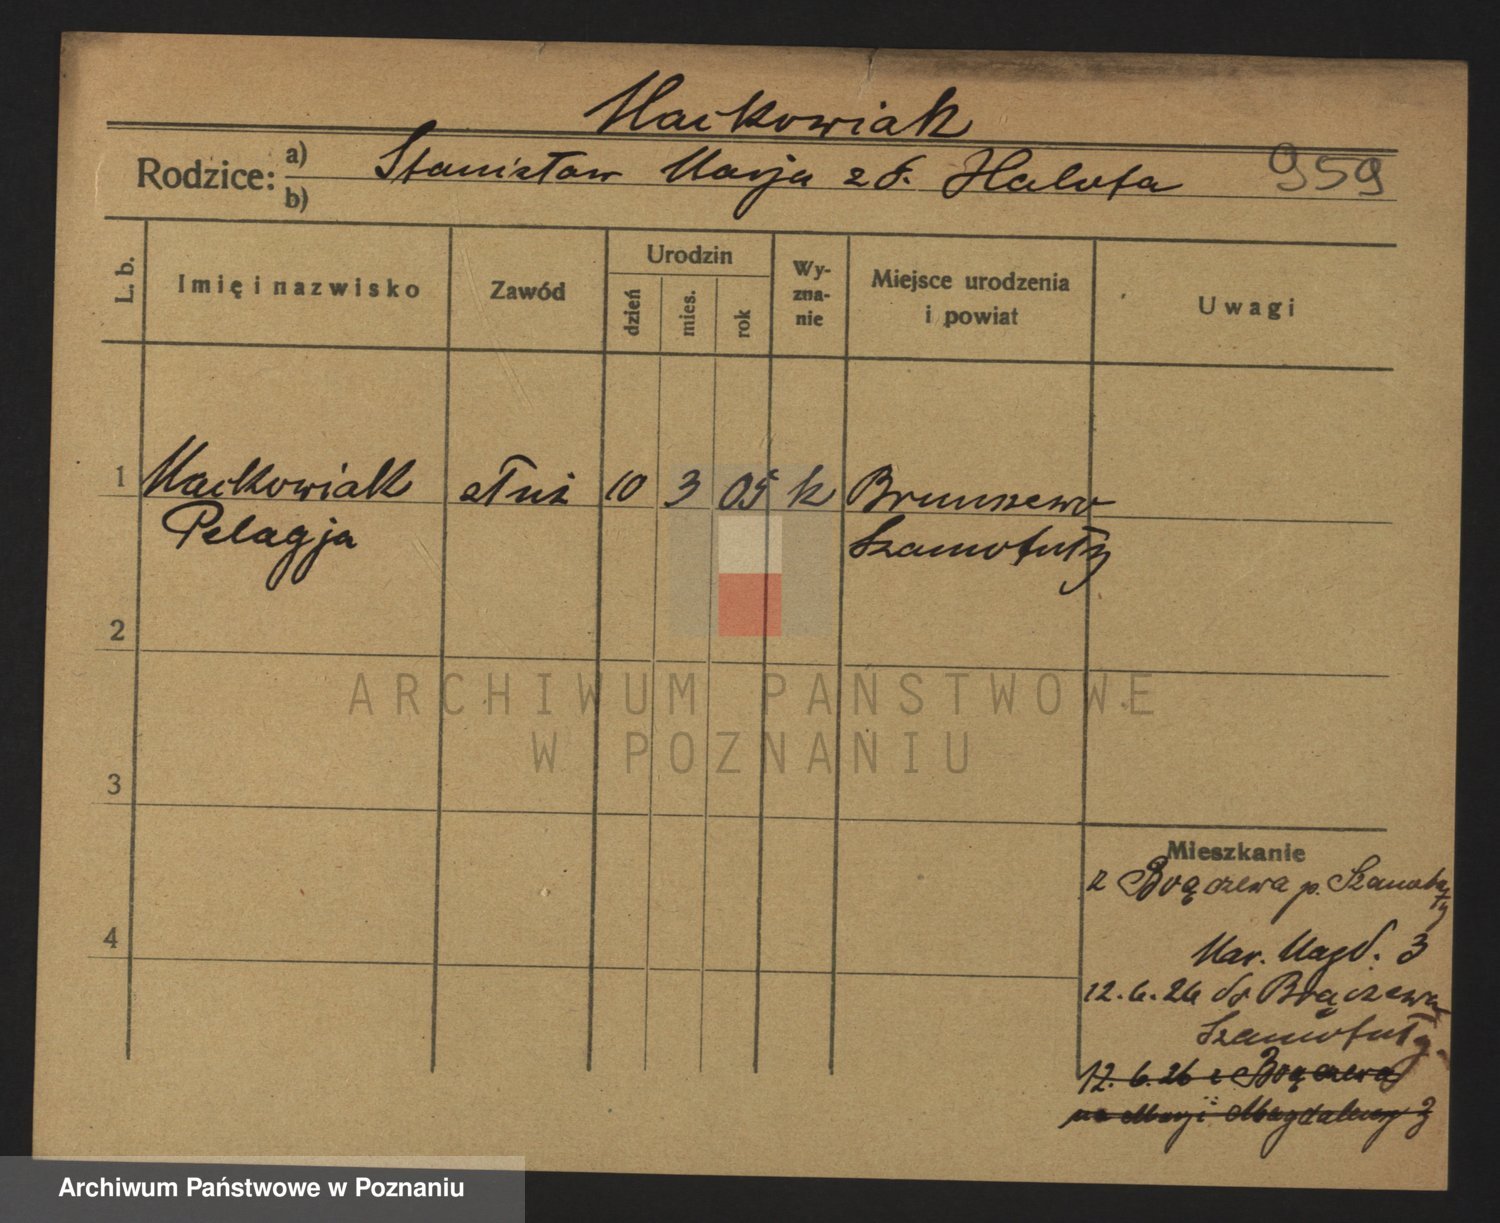 Maćkowiak
Rodzice: a) b)
Stanisław Marja z d. Halota 959
L. b.
Imię i nazwisko
Zawód
Urodzin
dzień
mies.
rok
Wy-
zna-
nie
Miejsce urodzenia
i powiat
Uwagi
1 Maćkowiak służ 10 3 05 k
Pelagja Szamotuły
2
3
4
ARCHIWUM PAŃSTWOWE
W POZNANIU
Mieszkanie
z p. Szamotuły
Mar. Magd. 3
12.6.26 do
Szamotuły
12.6.26 z
na Maryi Magdaleny 3
Archiwum Państwowe w Poznaniu